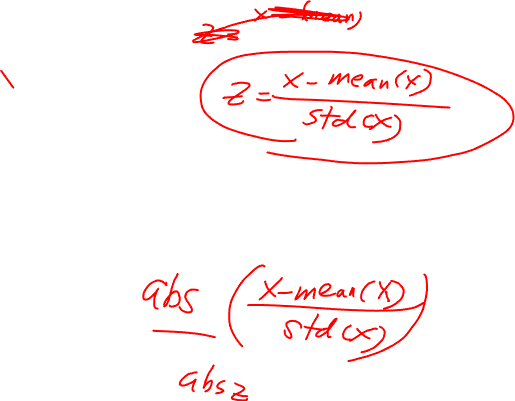 x - (mean)
z = x - mean(x)
std(x)
abs (x-mean(x))
std(x)
abs z